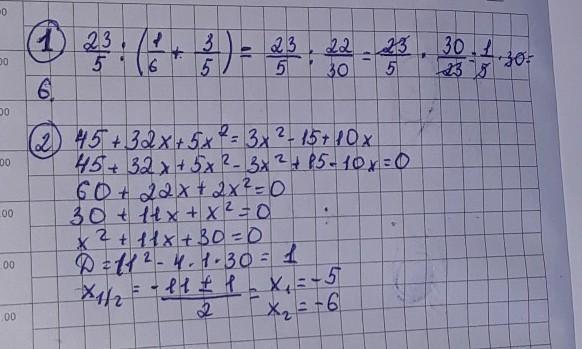 1 23/5 : (1/6 + 3/5) = 23/5 : 22/30 = 23/5 · 30/23 = 1/5 · 30 =
6.
2 45 + 32x + 5x² = 3x² - 15 + 10x
45 + 32x + 5x² - 3x² + 15 - 10x = 0
60 + 22x + 2x² = 0
30 + 11x + x² = 0
x² + 11x + 30 = 0
D = 11² - 4 · 1 · 30 = 1
x1/2 = -11 ± 1/2 = x₁ = -5
x₂ = -6